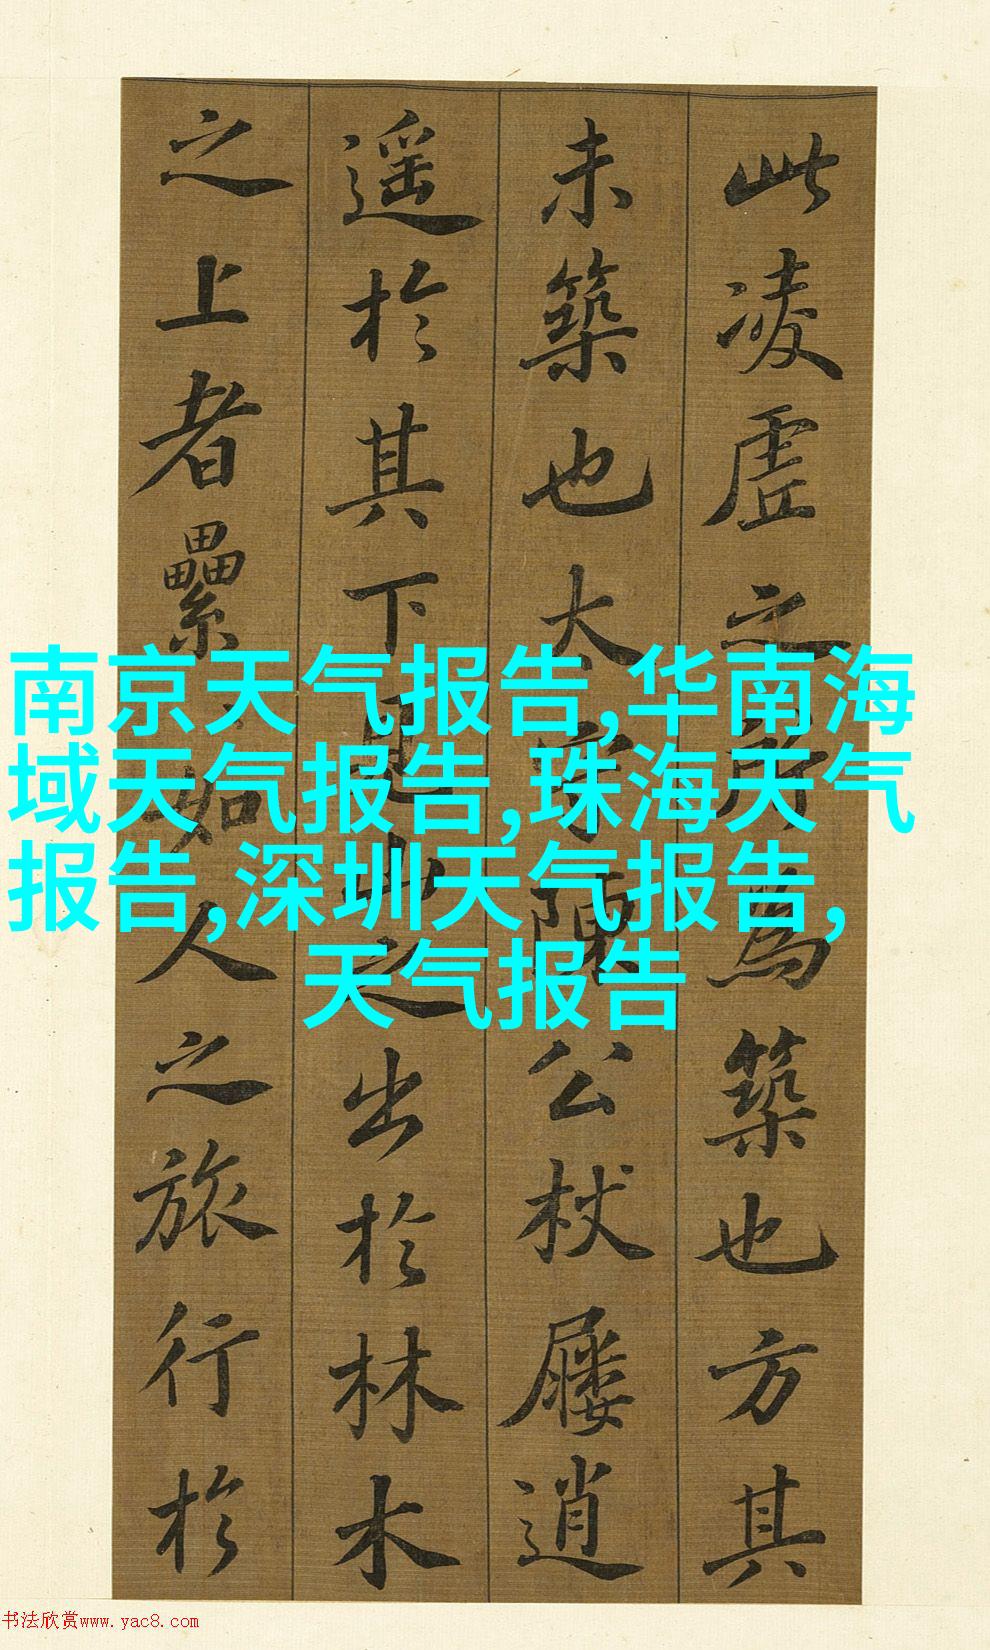 此凌虛之所為築也方其
未築也太守陳公杖屨逍
遥於其下見山之出於林木
之上者纍〻如人之旅行於
南京天气报告,华南海
域天气报告,珠海天气
报告,深圳天气报告,
天气报告
书法欣赏www.yac8.com